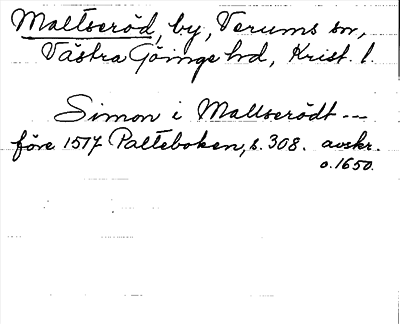 Maltseröd, by, Verums sn,
Västra Göinge hrd, Krist. l.
Simon i Mallserödt ---
före 1517 Palteboken, s. 308. avskr.
o. 1650.